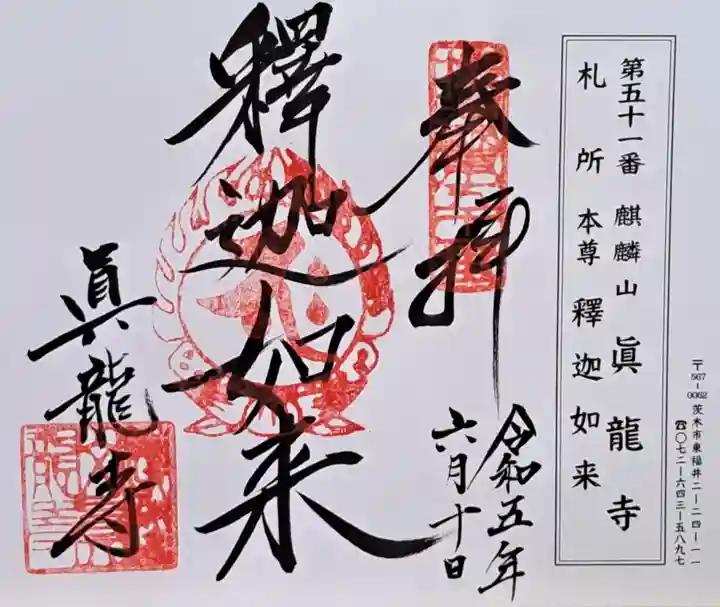 第五十一番 麒麟山 眞龍寺
札所本尊 釋迦如来
〒567-0062 茨木市東福井二ー二四ー一一
☎〇七二ー六四三ー五八九七
奉拝
令和五年
六月十日
釋迦如来
眞龍寺